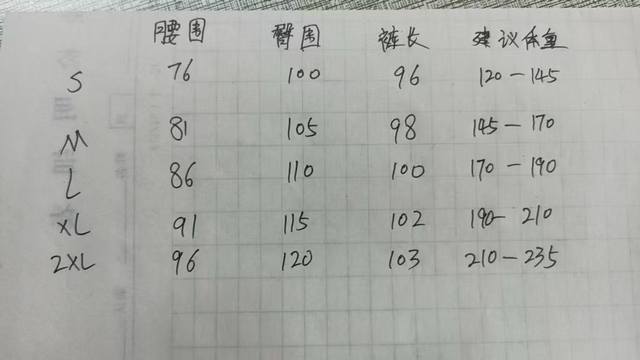 腰围 臀围 裤长 建议体重
S 76 100 96 120-145
M 81 105 98 145-170
L 86 110 100 170-190
XL 91 115 102 190-210
2XL 96 120 103 210-235